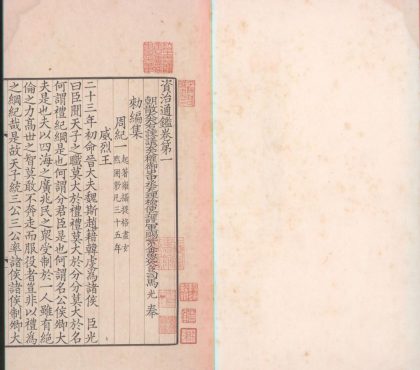 資治通鑑卷第一
朝散大夫右諫議大夫權御史中丞充理檢使上護軍賜紫金魚袋臣司馬 光 奉
勑編集
周紀一 起著雍攝提格盡玄
黓困敦凡三十五年
威烈王
二十三年初命晉大夫魏斯趙籍韓虔爲諸侯 臣光
曰臣聞天子之職莫大於禮禮莫大於分分莫大於名
何謂禮紀綱是也何謂分君臣是也何謂名公侯卿大
夫是也夫以四海之廣兆民之衆受制於一人雖有絕
倫之力高世之智莫敢不奔走而服役者豈非以禮爲
之綱紀哉是故天子統三公三公率諸侯諸侯制卿大